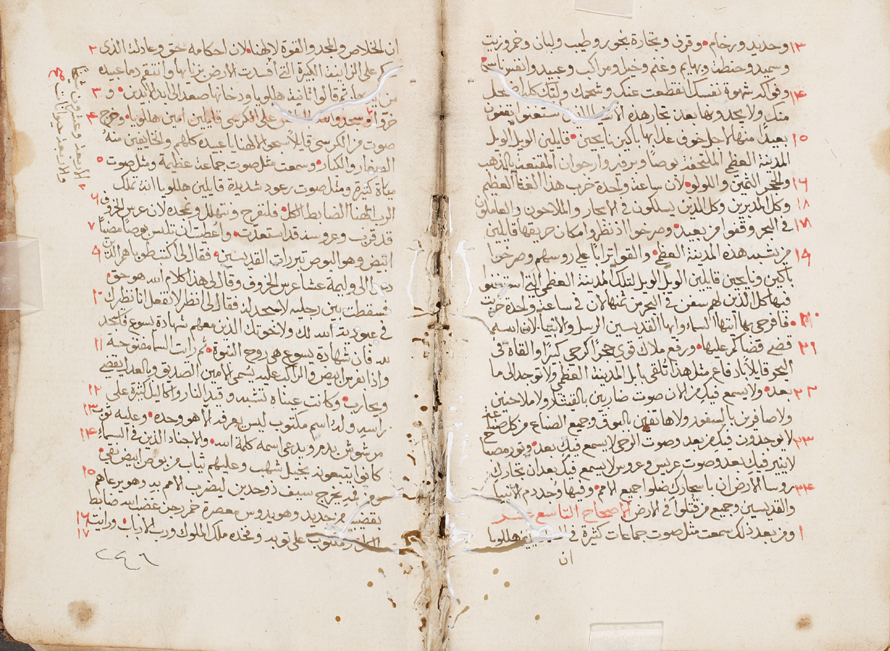 ١٣ وحديد ورخام وقرفه وتجارة بخور وطيب ولبان وخمر وزيت
وسميد وحنطه وبهايم وغنم وخيل ومراكب وعبيد وانفس ناس
١٤ شهوة نفسك انقطعت عنك ولذتك كلها
منك ولا يجدونها بعد تجار هذه الاشيا الذين استغنوا يقفون
١٥ بعيدا منها من اجل خوف عذابها باكين نايحين قايلين الويل الويل
المدينه العظمى الملتحفه بوصا وبرفير وارجوان بالذهب
١٦ والحجر الثمين واللولو لان ساعة واحدة خرب هذا الغنا العظيم
١٨ وكل المدبرين وكل الذين يسلكون في البحار والملاحون والعاملون
١٧ في البحر وقفوا من بعيد وصرخوا اذ نظروا مكان حريقها قايلين
١٩ من يشبه هذه المدينة العظمى والقوا ترابا على روسهم وصرخوا
باكين ونايحين قايلين الويل الويل لتلك المدينة العظمى التي استغنوا
فيها كل الذين لهم سفن في البحر من ثمنها لان في ساعة واحدة خربت
٢٠ فافرحي بها ايتها السما وايها القديسين الرسل والانبيا لان الله
٢١ قضى قضاكم عليها ورفع ملاك قوي حجرا كرحى كبير والقاه في
البحر قايلا بادفاع مثل هذا تلقى بابل المدينة العظمى ولا توجد الى ما
٢٢ بعد ولا يسمع فيك من الان صوت ضاربين بالقيثار ولا ملاحنين
ولا صافرين بالصفور ولا هاتفين بالبوق وجميع الصناع من كل صنعة
٢٣ لا يوجدون فيك من بعد وصوت الرحى لا يسمع فيك بعد ونور مصباح
لا ينير فيك بعد وصوت عريس وعروس لا يسمع فيك بعد لان تجارك
٢٤ روسا الارض لان بسحارك ضلوا جميع الامم وفيها وجد دم الانبيا
والقديسين وجميع من قتلوا في الارض الاصحاح التاسع عشر
١ ومن بعد ذلك سمعت مثل صوت جماعات كثيرة في السما قايلين هللويا
ان
٢ ان الخلاص والمجد والقوة لالهنا لان احكامه حق وعادلة الذي
حكم على الزانية الكبيرة التي افسدت الارض بزناها وانتقم دم عبيده
٣ من يديها ثم قالوا ثانية هللويا ودخانها صعد الى ابد الابدين و
٤ على الكرسي قايلين امين هللويا وخرج
صوت من الكرسي قايلا سبحوا الهنا يا عبيده كلهم والخايفين منه
٥ الصغار والكبار وسمعت مثل صوت جماعة عظيمة ومثل صوت
مياه كثيرة ومثل صوت رعود شديدة قايلين هللويا انه تملك
٦ الرب الهنا الضابط الكل فلنفرح ونتهلل ونمجده لان عرس الخروف
٧ قد قرب وعروسه قد استعدت واعطيت ان تلبس بوصا مضيا
٩ ابيض وهو البوص تبررات القديسين فقال لي اكتب طوبا هم الذين
دعيوا الى وليمة عشا عرس الخروف وقال لي هذا كلام الله هو حق
١٠ فسقطت بين رجليه لاسجد له فقال لي انظر لا تفعل انا نظيرك
في عبودية الله لك ولاخوتك الذين معهم شهادة يسوع فاسجد
١١ لله فان شهادة يسوع هي روح النبوة ثم رايت السما مفتوحة
واذا بفرس ابيض والراكب عليه يسمى الامين الصديق وبالعدل يقضي
١٢ ويحارب وكانت عيناه تشبه وقيد النار واكاليل كثيرة على
١٣ راسه وله اسم مكتوب ليس يعرفه الا هو وحده وعليه ثوب
١٤ مرشوش بدم ويدعى اسمه كلمة الله والاجناد الذين في السما
كانوا يتبعونه بخيل شهب وعليهم ثياب من بوص ابيض نقي
١٥ ومن فيه يخرج سيف ذو حدين ليضرب الامم به وهو يرعاهم
بقضيب من حديد وهو يدوس معصرة خمر رجز غضب الله ضابط
١٦ الكل مكتوب على ثوبه وفخذه ملك الملوك ورب الارباب ورايت
١٧
٢٤٦